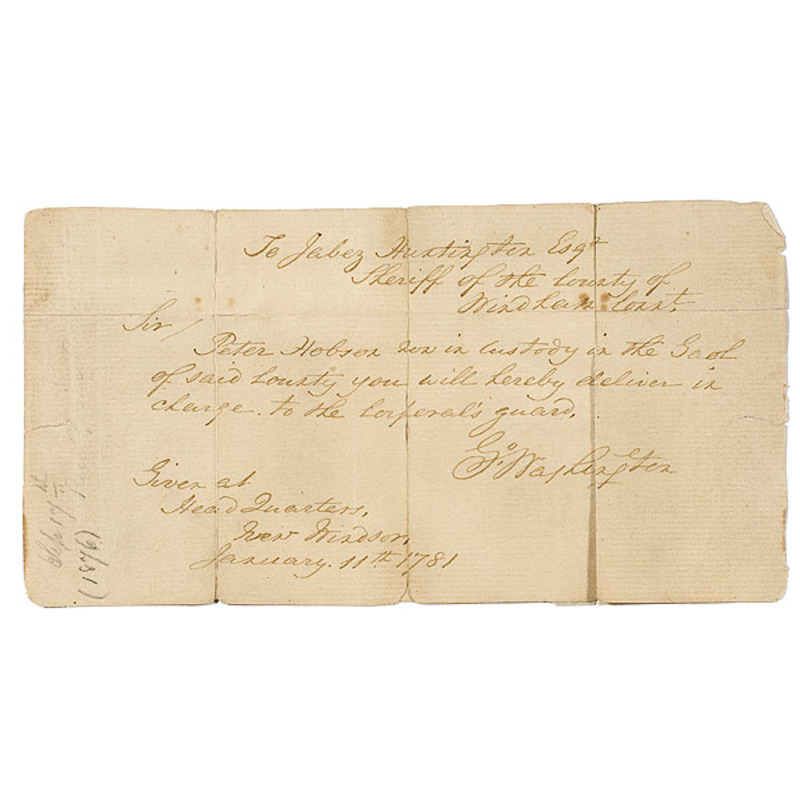 To Jabez Huntington Esqr
Sheriff of the County of
Windham Connt.
Sir /
Peter Hobson now in custody in the Gaol
of said County you will hereby deliver in
charge. to the Corporal's guard.
Go. Washington
Given at
Head Quarters,
New Windsor,
January. 11th 1781